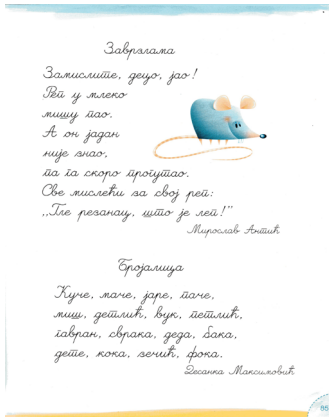 Заврзлама
Замислите, децо, јао!
Реп у млеко
мишу пао.
А он јадан
није знао,
па га скоро прогутао.
Све мислећи за свој реп:
„Гле резанац, што је леп!”
Мирослав Антић
Бројалица
Куче, маче, јаре, паче,
миш, детлић, вук, петлић,
гавран, сврака, деда, бака,
дете, кока, зечић, фока.
Десанка Максимовић
85